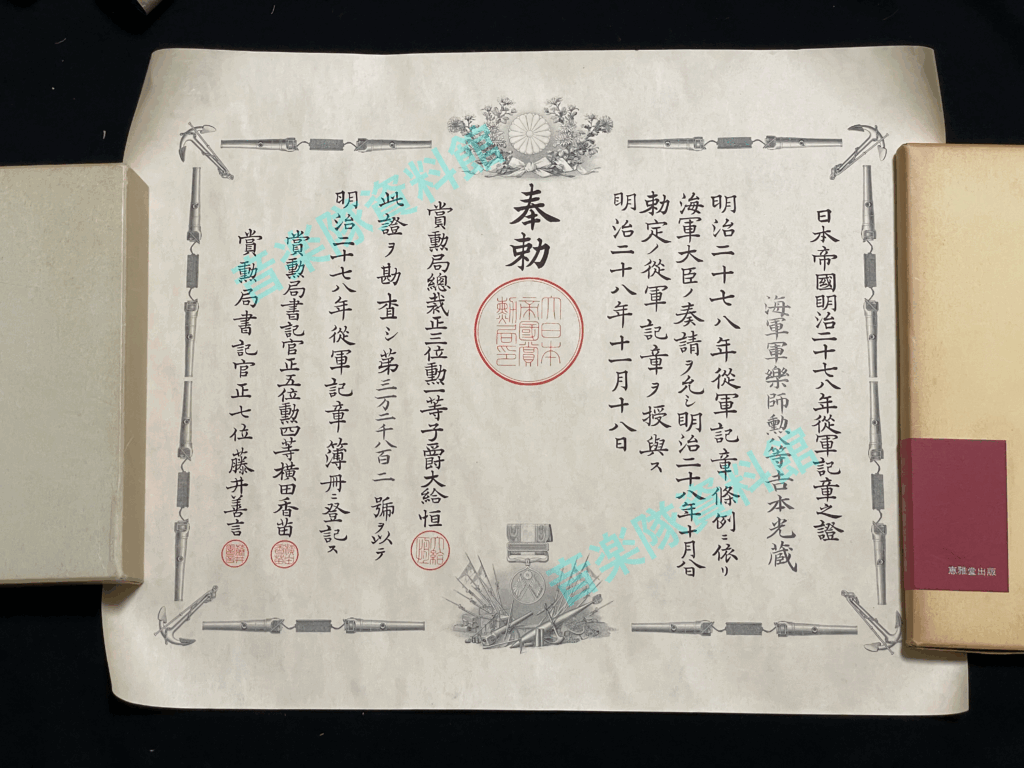 日本帝國明治二十七八年從軍記章之證
海軍軍樂師勲八等吉本光蔵
明治二十七八年從軍記章條例ニ依リ
海軍大臣ノ奏請ヲ允シ明治二十八年十月八日
勅定ノ從軍記章ヲ授與ス
明治二十八年十一月十八日
奉勅
大日本
帝國賞
勲局印
賞勲局總裁正三位勲一等子爵大給恒
此證ヲ勘査シ第三万二千八百二號ヲ以テ
明治二十七八年從軍記章簿冊ニ登記ス
賞勲局書記官正五位勲四等橫田香苗
賞勲局書記官正七位藤井善言
音楽隊資料館
音楽隊資料館
惠雅堂出版